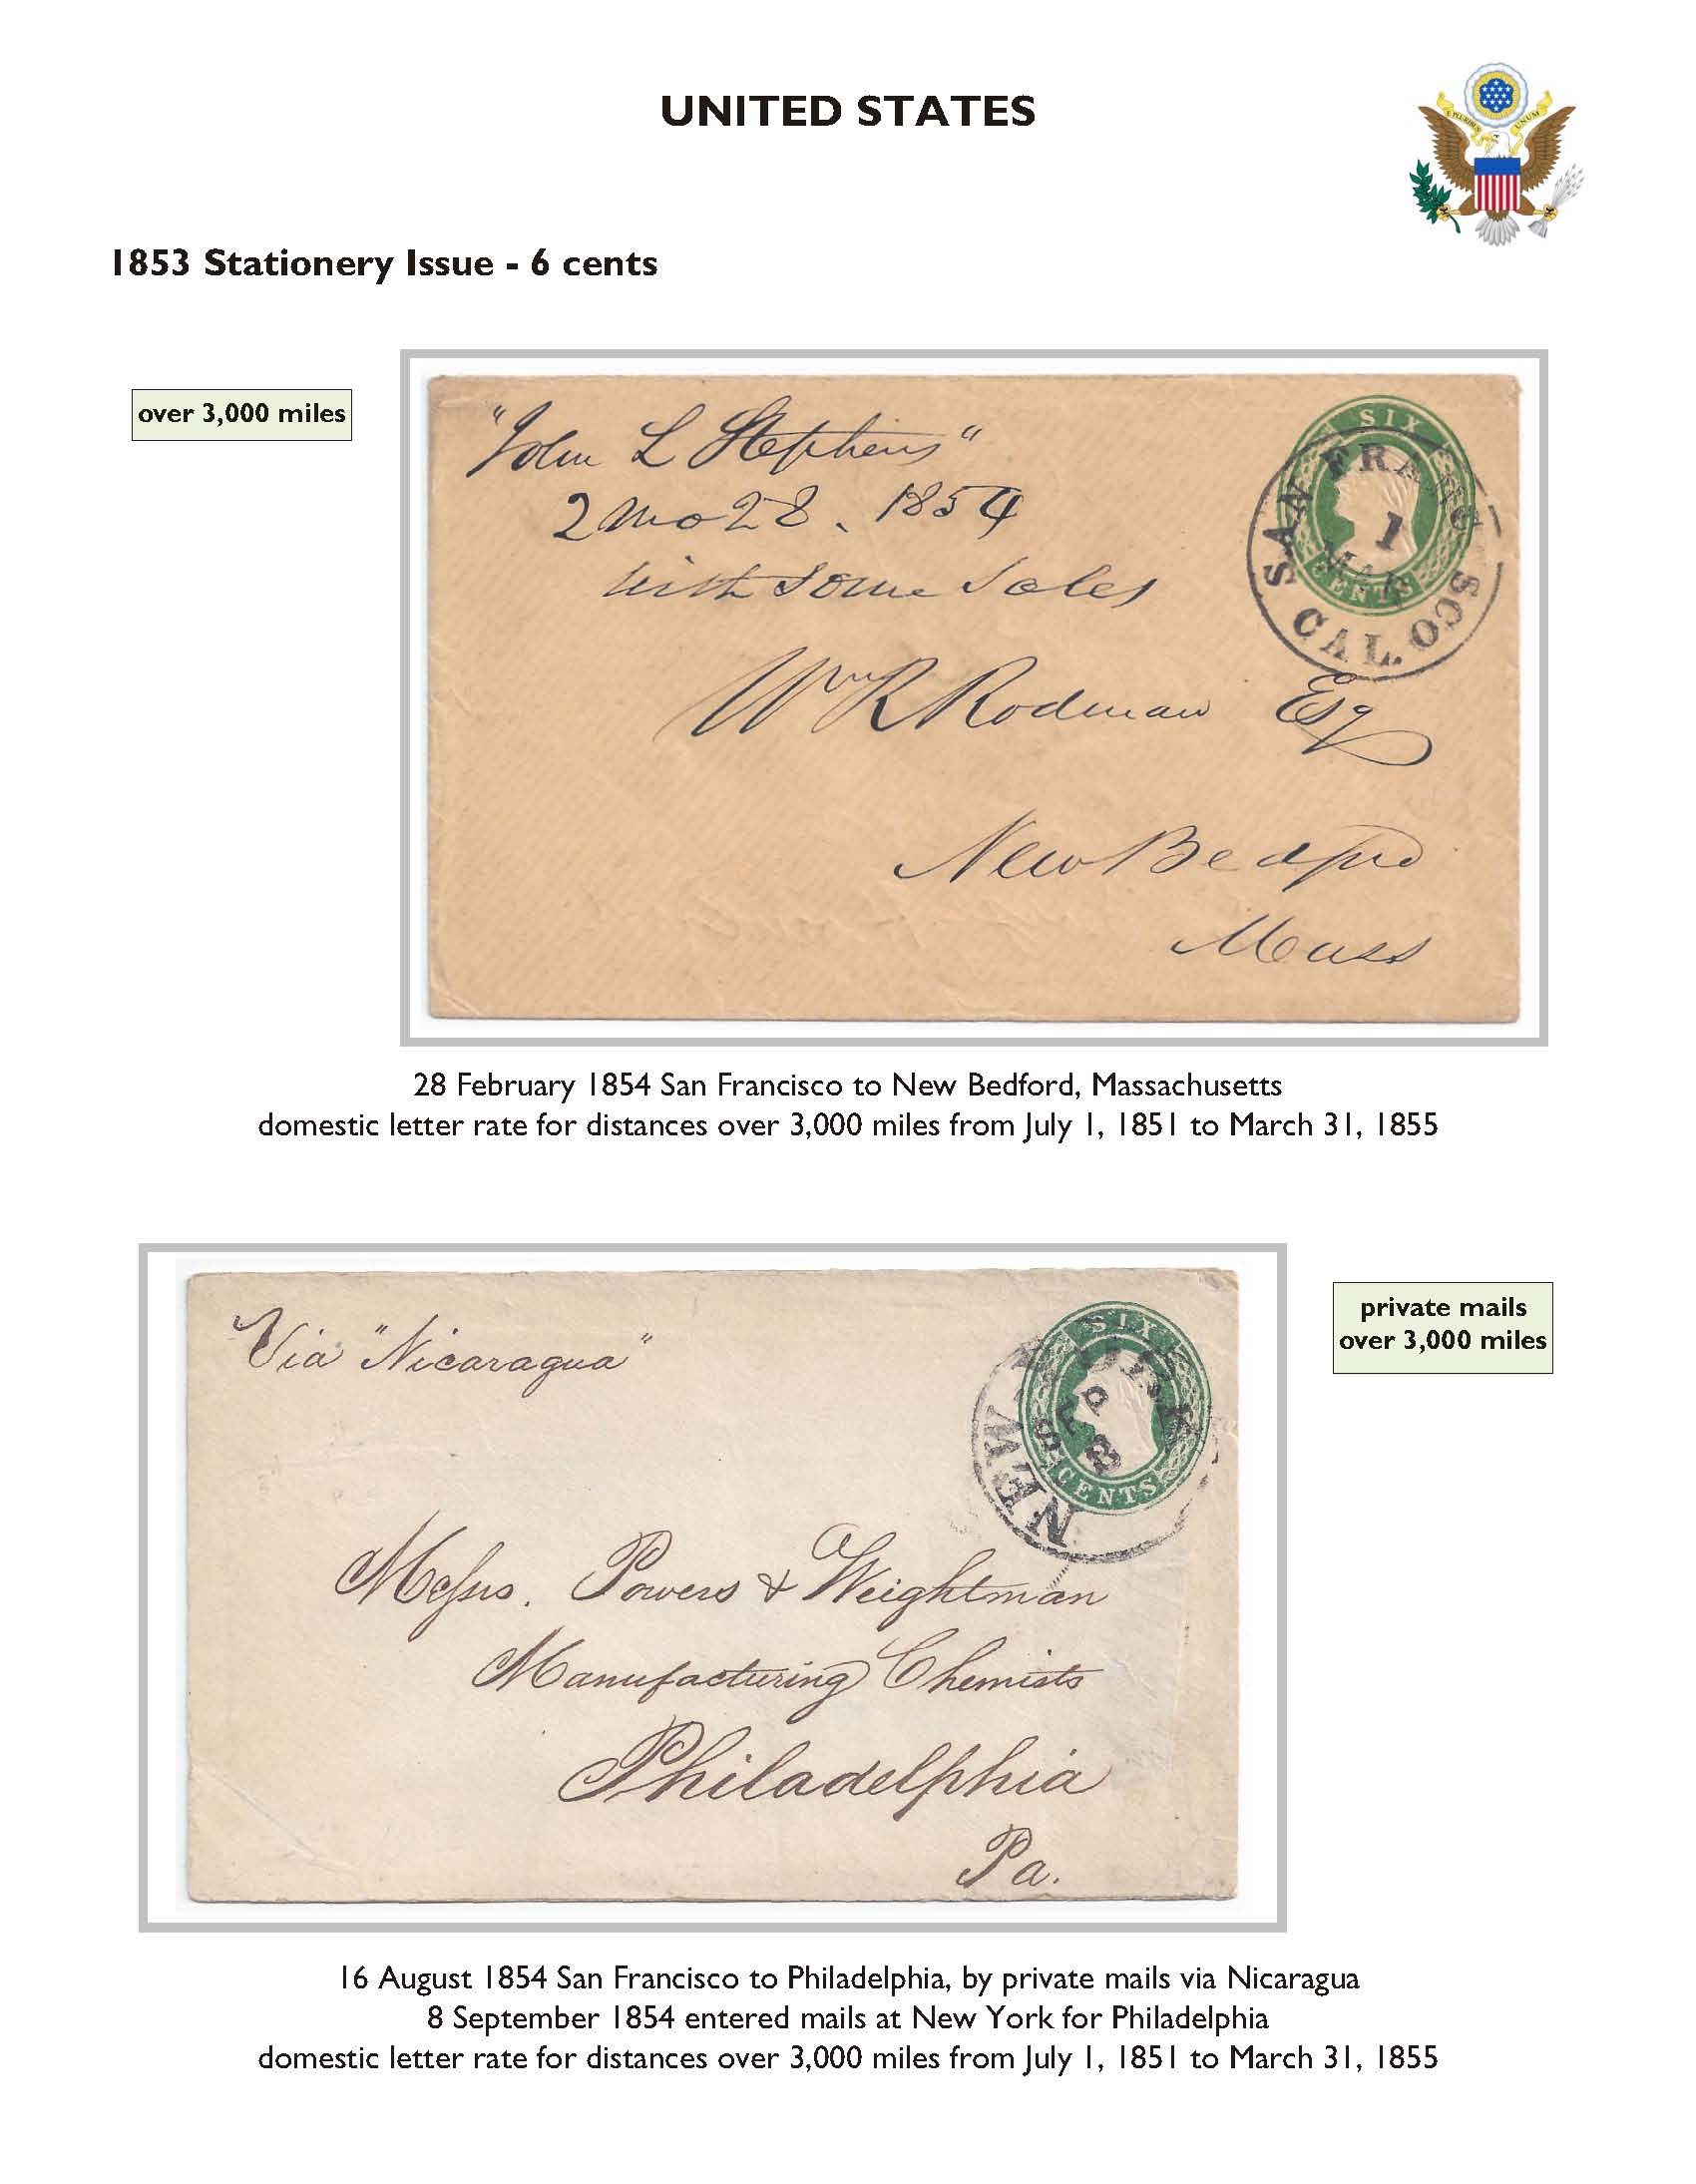 UNITED STATES
E PLURIBUS UNUM
1853 Stationery Issue - 6 cents
over 3,000 miles
"John L Stephens"
2 mo 28. 1854
with some
SIX CENTS
SAN FRANCISCO CAL.
1 MAR
Wm R Rodman Esq
New Bedford
Mass
28 February 1854 San Francisco to New Bedford, Massachusetts
domestic letter rate for distances over 3,000 miles from July 1, 1851 to March 31, 1855
private mails
over 3,000 miles
Via "Nicaragua"
SIX CENTS
NEW YORK
SEP 8
Messrs. Powers & Weightman
Manufacturing Chemists
Philadelphia
Pa.
16 August 1854 San Francisco to Philadelphia, by private mails via Nicaragua
8 September 1854 entered mails at New York for Philadelphia
domestic letter rate for distances over 3,000 miles from July 1, 1851 to March 31, 1855